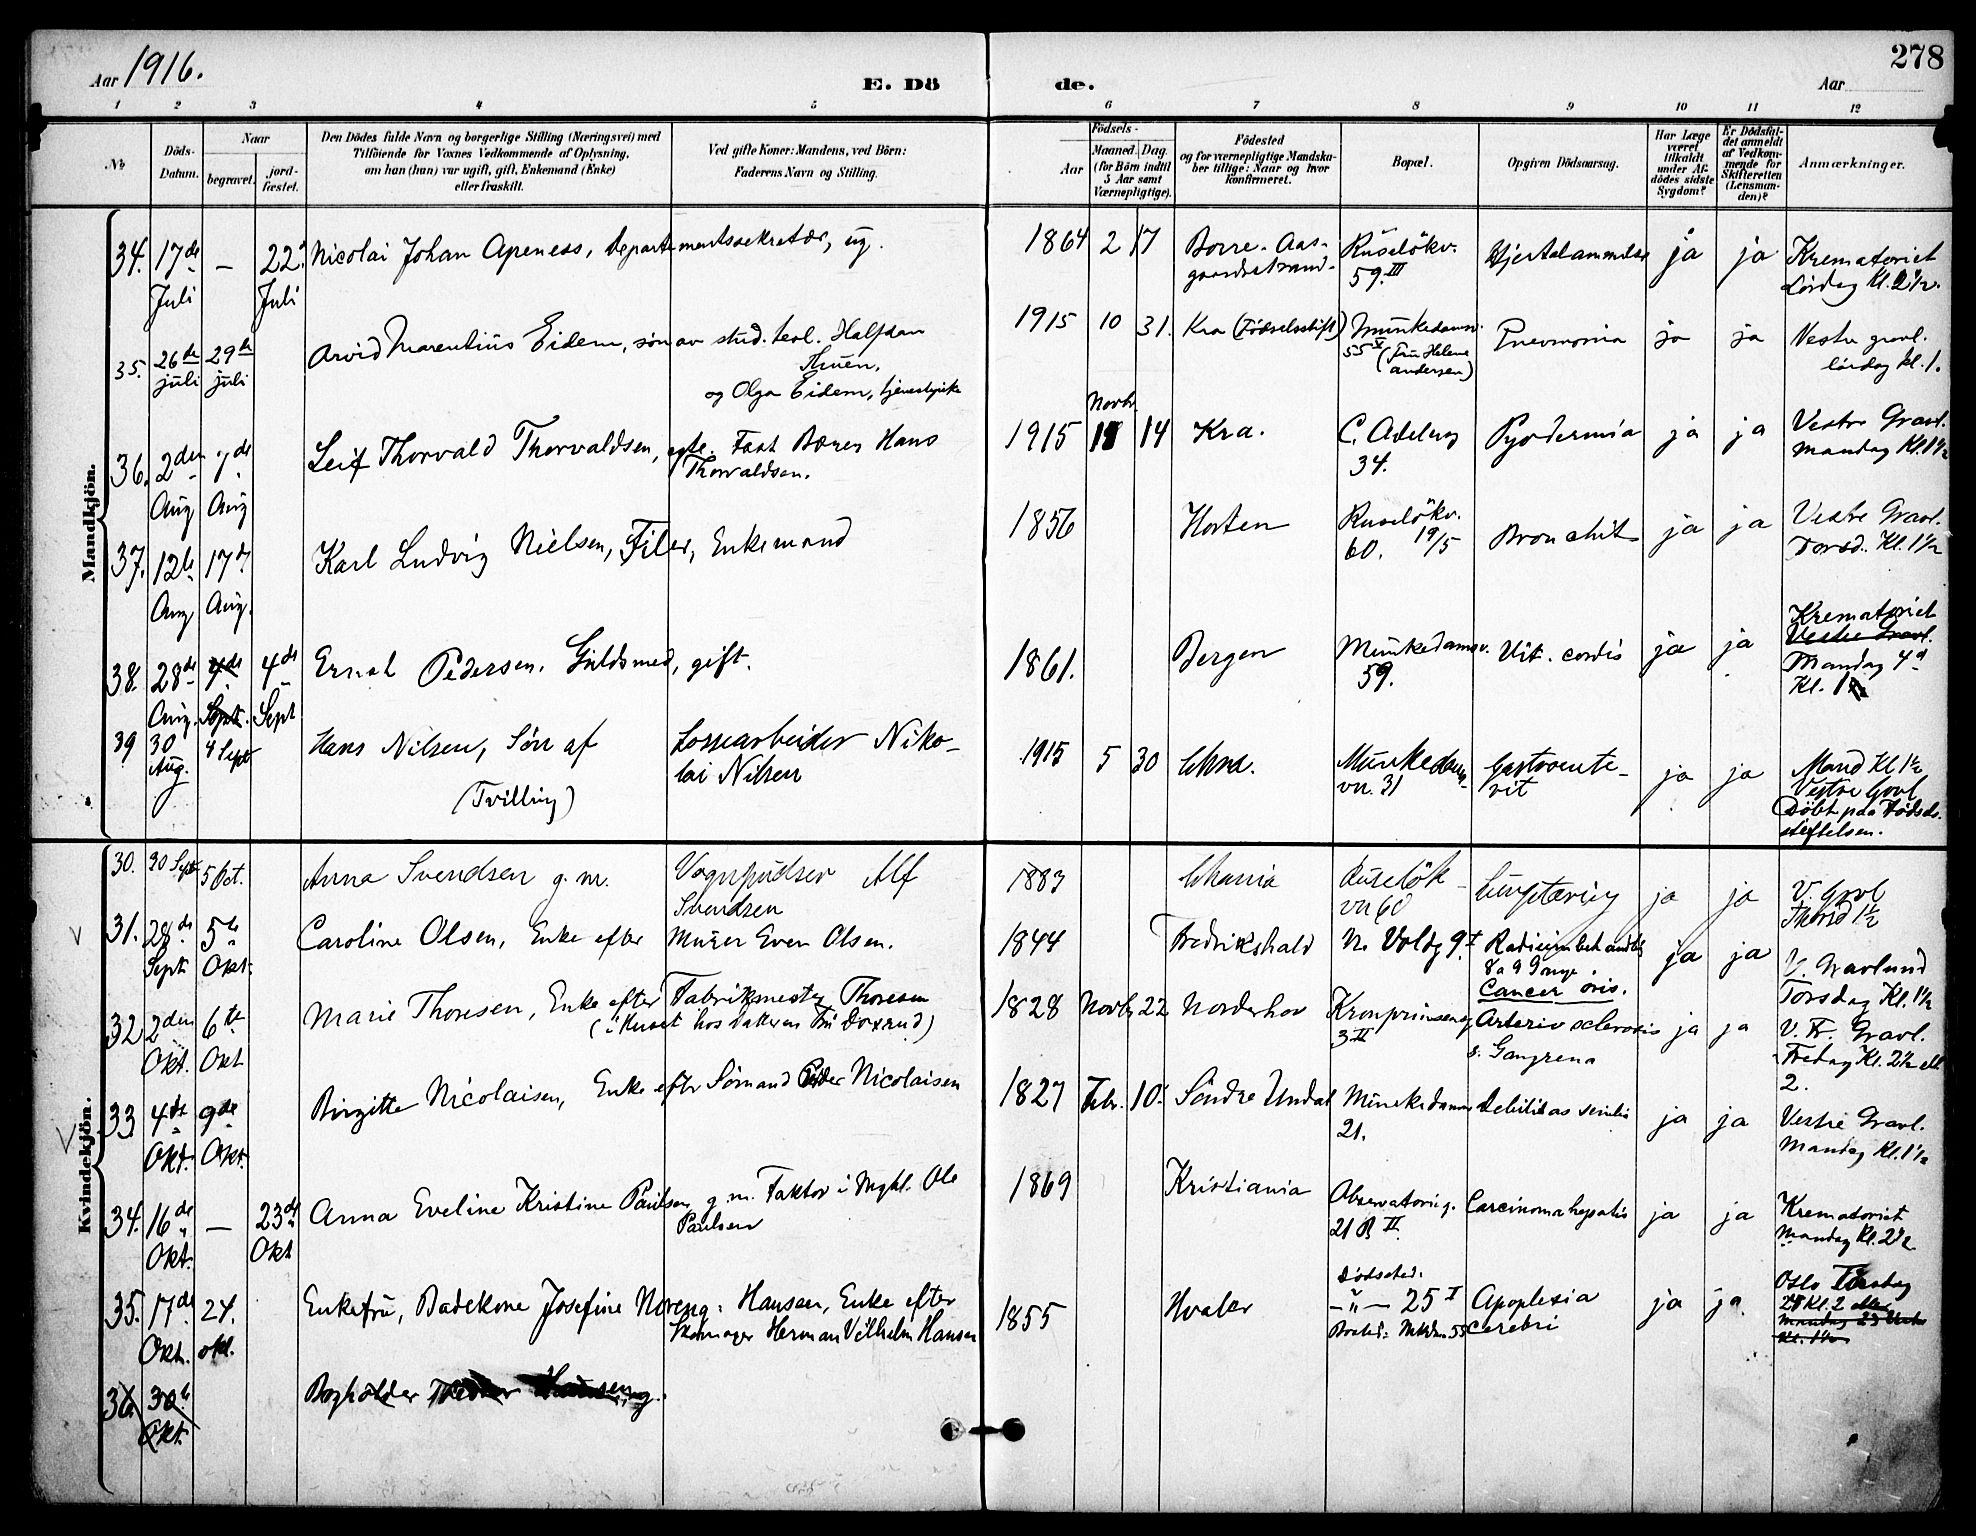 Aar 1916.
E. Dö
de.
Aar
278
1 2 3 4 5 6 7 8 9 10 11 12
No
Döds-Datum.
Naar
begravet.
jord-fæstet.
Den Dödes fulde Navn og borgerlige Stilling (Næringsvei) med
Tilföiende for Voxnes Vedkommende af Oplysning,
om han (hun) var ugift, gift, Enkemand (Enke)
eller fraskilt.
Ved gifte Koner: Mandens, ved Börn:
Faderens Navn og Stilling.
Födsels-
Aar
Maaned. Dag.
(for Börn indtil
5 Aar samt
Værnepligtige).
Födested
og for værnepligtige Mandska-
ber tillige: Naar og hvor
konfirmeret.
Bopæl.
Opgiven Dödsaarsag.
Har Læge
været
tilkaldt
under Af-
dödes sidste
Sygdom?
Er Dödsfal-
det anmeldt
af Vedkom-
mende for
Skifteretten
(Lensman-
den)?
Anmærkninger.
Mandkjön.
34. 17de Juli — 22. Juli Nicolai Johan Apeness, departementssekretær, ug. 1864 2 17 Borre. Aas-
gaardsstrand. Ruselökv.
59.III ja ja Krematoriet
Lördag Kl. 2½.
35. 26de juli 29de juli Arvid Marentius Eidem, søn av stud. teol. Halfdan
Thuen,
og Olga Eidem, tjenestepike 1915 10 31. Kra (Fødselsstift) Munkedamsv.
55 V (Fru Helene
Andersen) Pnevmonia ja ja Vestre gravl.
lördag kl. 1.
36. 2den Aug 7de Aug Leif Thorvald Thorvaldsen, egte. Hans
Thorvaldsen. 1915 Novbr. 14 Kra. C. Adelers
34. Pyodermia ja ja Vestre Gravl.
Mandag Kl. 1½
37. 12te Aug 17de Aug. Karl Ludvig Nielsen, Filer, Enkemand 1856 Horten Ruselökv.
60. 19/5 Bronchit ja ja Vestre Gravl.
Torsd. Kl. 1½
38. 28de Aug. 4de Sept. 4de Sept Ernst Pedersen, Guldsmed, gift. 1861. Bergen Munkedamsv.
59. Vit. cordis ja ja Krematoriet
Vestre Gravl.
Mandag 4d
Kl. 1
39 30 Aug. 4 Sept Hans Nilsen, Søn af
(Tvilling) Lossearbeider Niko-
lai Nilsen 1915 5 30 Chra. Munkedams-
vn. 31 Gastroente-
rit ja ja Mand Kl 1½
Vestre Gravl
Döbt paa Fødsels-
stiftelsen.
Kvindekjön.
30. 30 Sept 5 Oct. Anna Svendsen g.m. Vognpudser Alf
Svendsen 1883 Chania Ruselök-
vn 60 Lungetæring ja ja V. Gravl
Thorsd 1½
31. 28de Sept 5te Okt. Caroline Olsen, Enke efter Murer Even Olsen. 1844 Fredrikshald N. Voldg 9.I Radiumbehandlet
8 a 9 Gange.
Cancer oris. ja ja V. Gravlund
Torsdag Kl. 1½
32 2den Okt. 6te Okt Marie Thoresen, Enke efter Fabrikmester Thoresen
(i Huset hos datteren Fru Foxrud) 1828 Novbr 22 Norderhov Kronprinseng
3 II Arteriosclerosis
s. Gangrena ja ja V. Fr. Gravl.
Fredag Kl. 2½ ell.
2.
33 4de Okt. 9de Okt. Birgitte Nicolaisen, Enke efter Sömand Peder Nicolaisen 1827 Febr. 10. Söndre Undal Munkedamsv
21. debilitas senilis ja ja Vestre Gravl.
Mandag Kl. 1½
34. 16de Okt. — 23de Okt Anna Eveline Kristine Paulsen, g.m. Faktor i Mgbl. Ole
Paulsen 1869 Kristiania Observatorieg.
21 B II. Carcinoma hepatis ja ja Krematoriet
Mandag Kl. 2½
35. 17de Okt. 24. okt. Enkefru, Badekone Josefine Noreng: Hansen, Enke efter
Skomager Herman Vilhelm Hansen 1855 Hvaler Dödssted:
—"— 25 I
Bosted: Mkdm. 55 Apoplexia
cerebri ja ja. Oslo Tirsdag
Kl. 2
mandag 23
36. 30te Okt. Bogholder